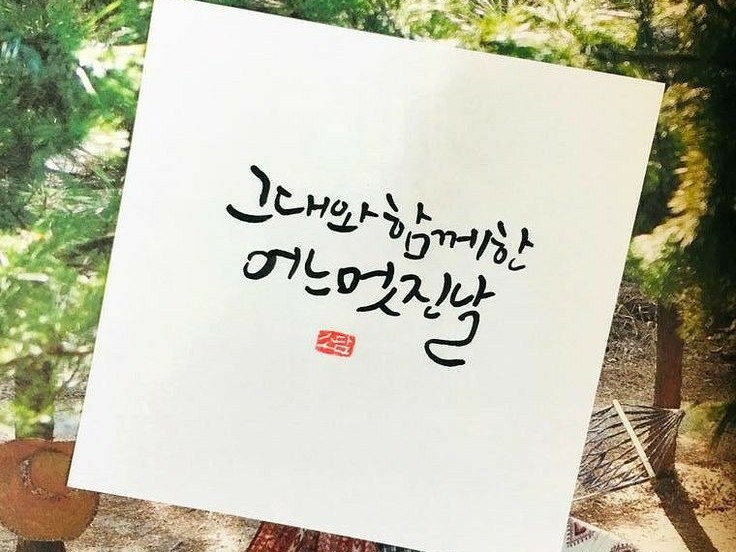 그대와 함께한
어느 멋진 날
소담